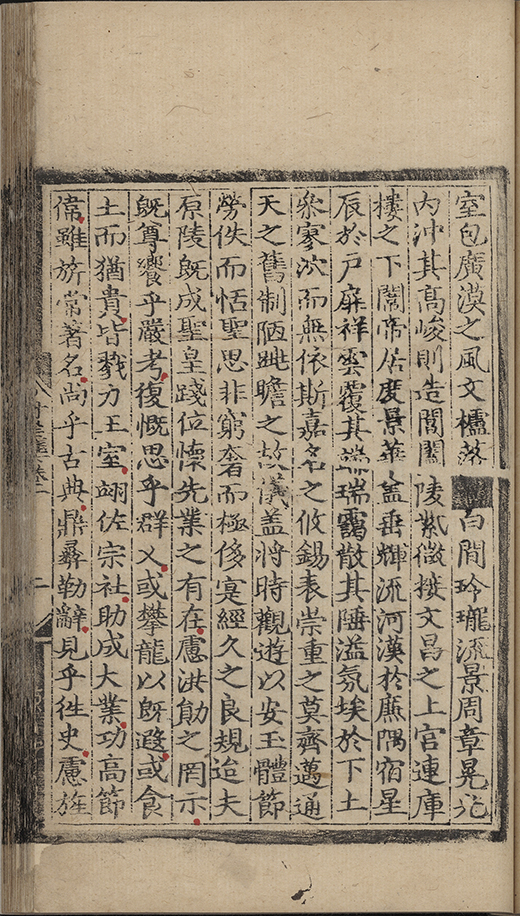 室包廣漠之風文櫺落■白間玲瓏流景周章晃光
內沖其高峻則造閶闔陵紫微接文昌之上宮連庫
樓之下閣帝居度景華盖垂輝流河漢於廡隅宿星
辰於戶屏祥雲覆其端瑞靄散其陲溢氛埃於下土
叅寥泬而無依斯嘉名之攸錫表崇重之莫齊邁通
天之舊制陋眺瞻之故儀盖將時觀遊以安玉體節
勞佚而恬聖思非窮奢而極侈寔經久之良規迨夫
原陵旣成聖皇踐位懍先業之有在慮洪勛之罔示
旣尊饗乎嚴考復慨思乎群乂或攀龍以旣遐或食
土而猶貴皆戮力王室翊佐宗社助成大業功高節
偉雖旂常著名尚乎古典鼎彝勒辭見乎徃史慮旌